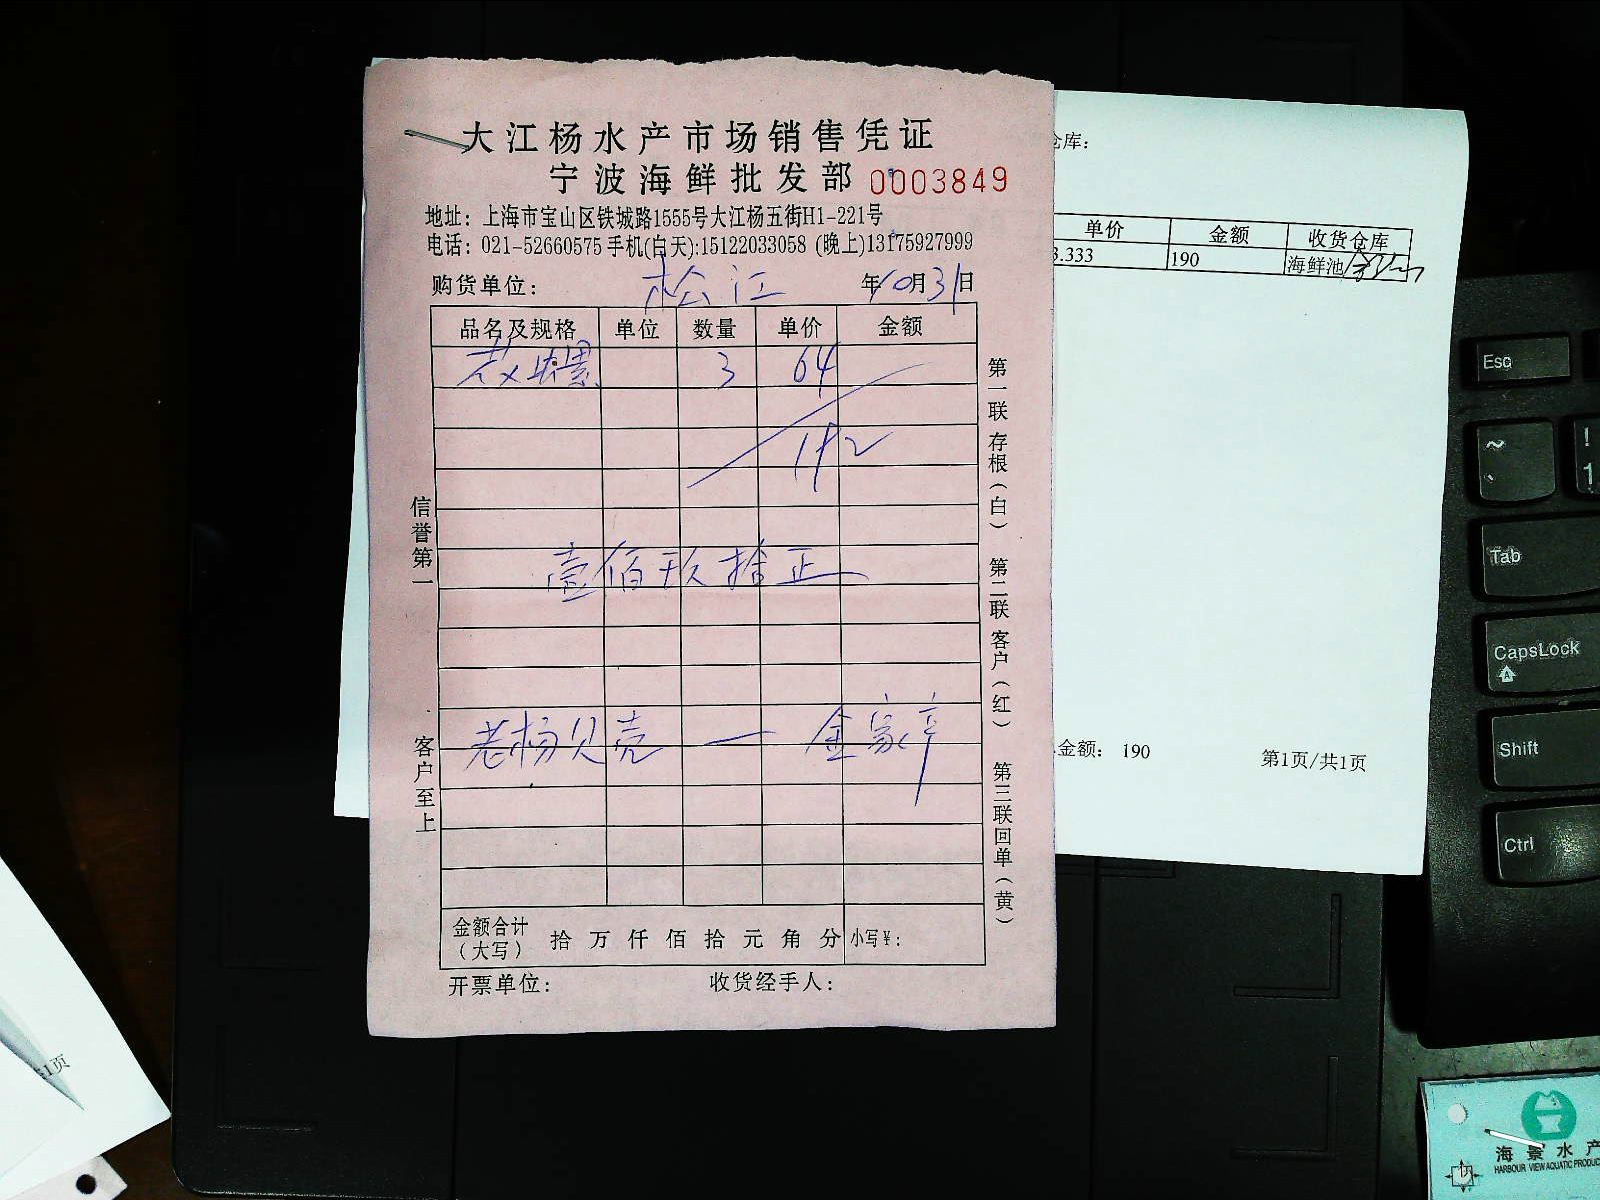 大江杨水产市场销售凭证
宁波海鲜批发部 0003849
地址：上海市宝山区铁城路1555号大江杨五街H1-221号
电话：021-52660575 手机(白天):15122033058 (晚上)13175927999
购货单位： 松江 年10月31日
品名及规格 单位 数量 单价 金额
3 64
192
壹佰玖拾正
老杨贝壳 — 金家辛
金额合计（大写） 拾 万 仟 佰 拾 元 角 分 小写¥：
开票单位： 收货经手人：
信誉第一
客户至上
第一联 存根（白） 第二联 客户（红） 第三联 回单（黄）
仓库：
单价 金额 收货仓库
3.333 190 海鲜池
金额： 190 第1页/共1页
Esc
~
`
!
1
Tab
CapsLock
A
Shift
Ctrl
1页
海景水产
HARBOUR VIEW AQUATIC PRODUC